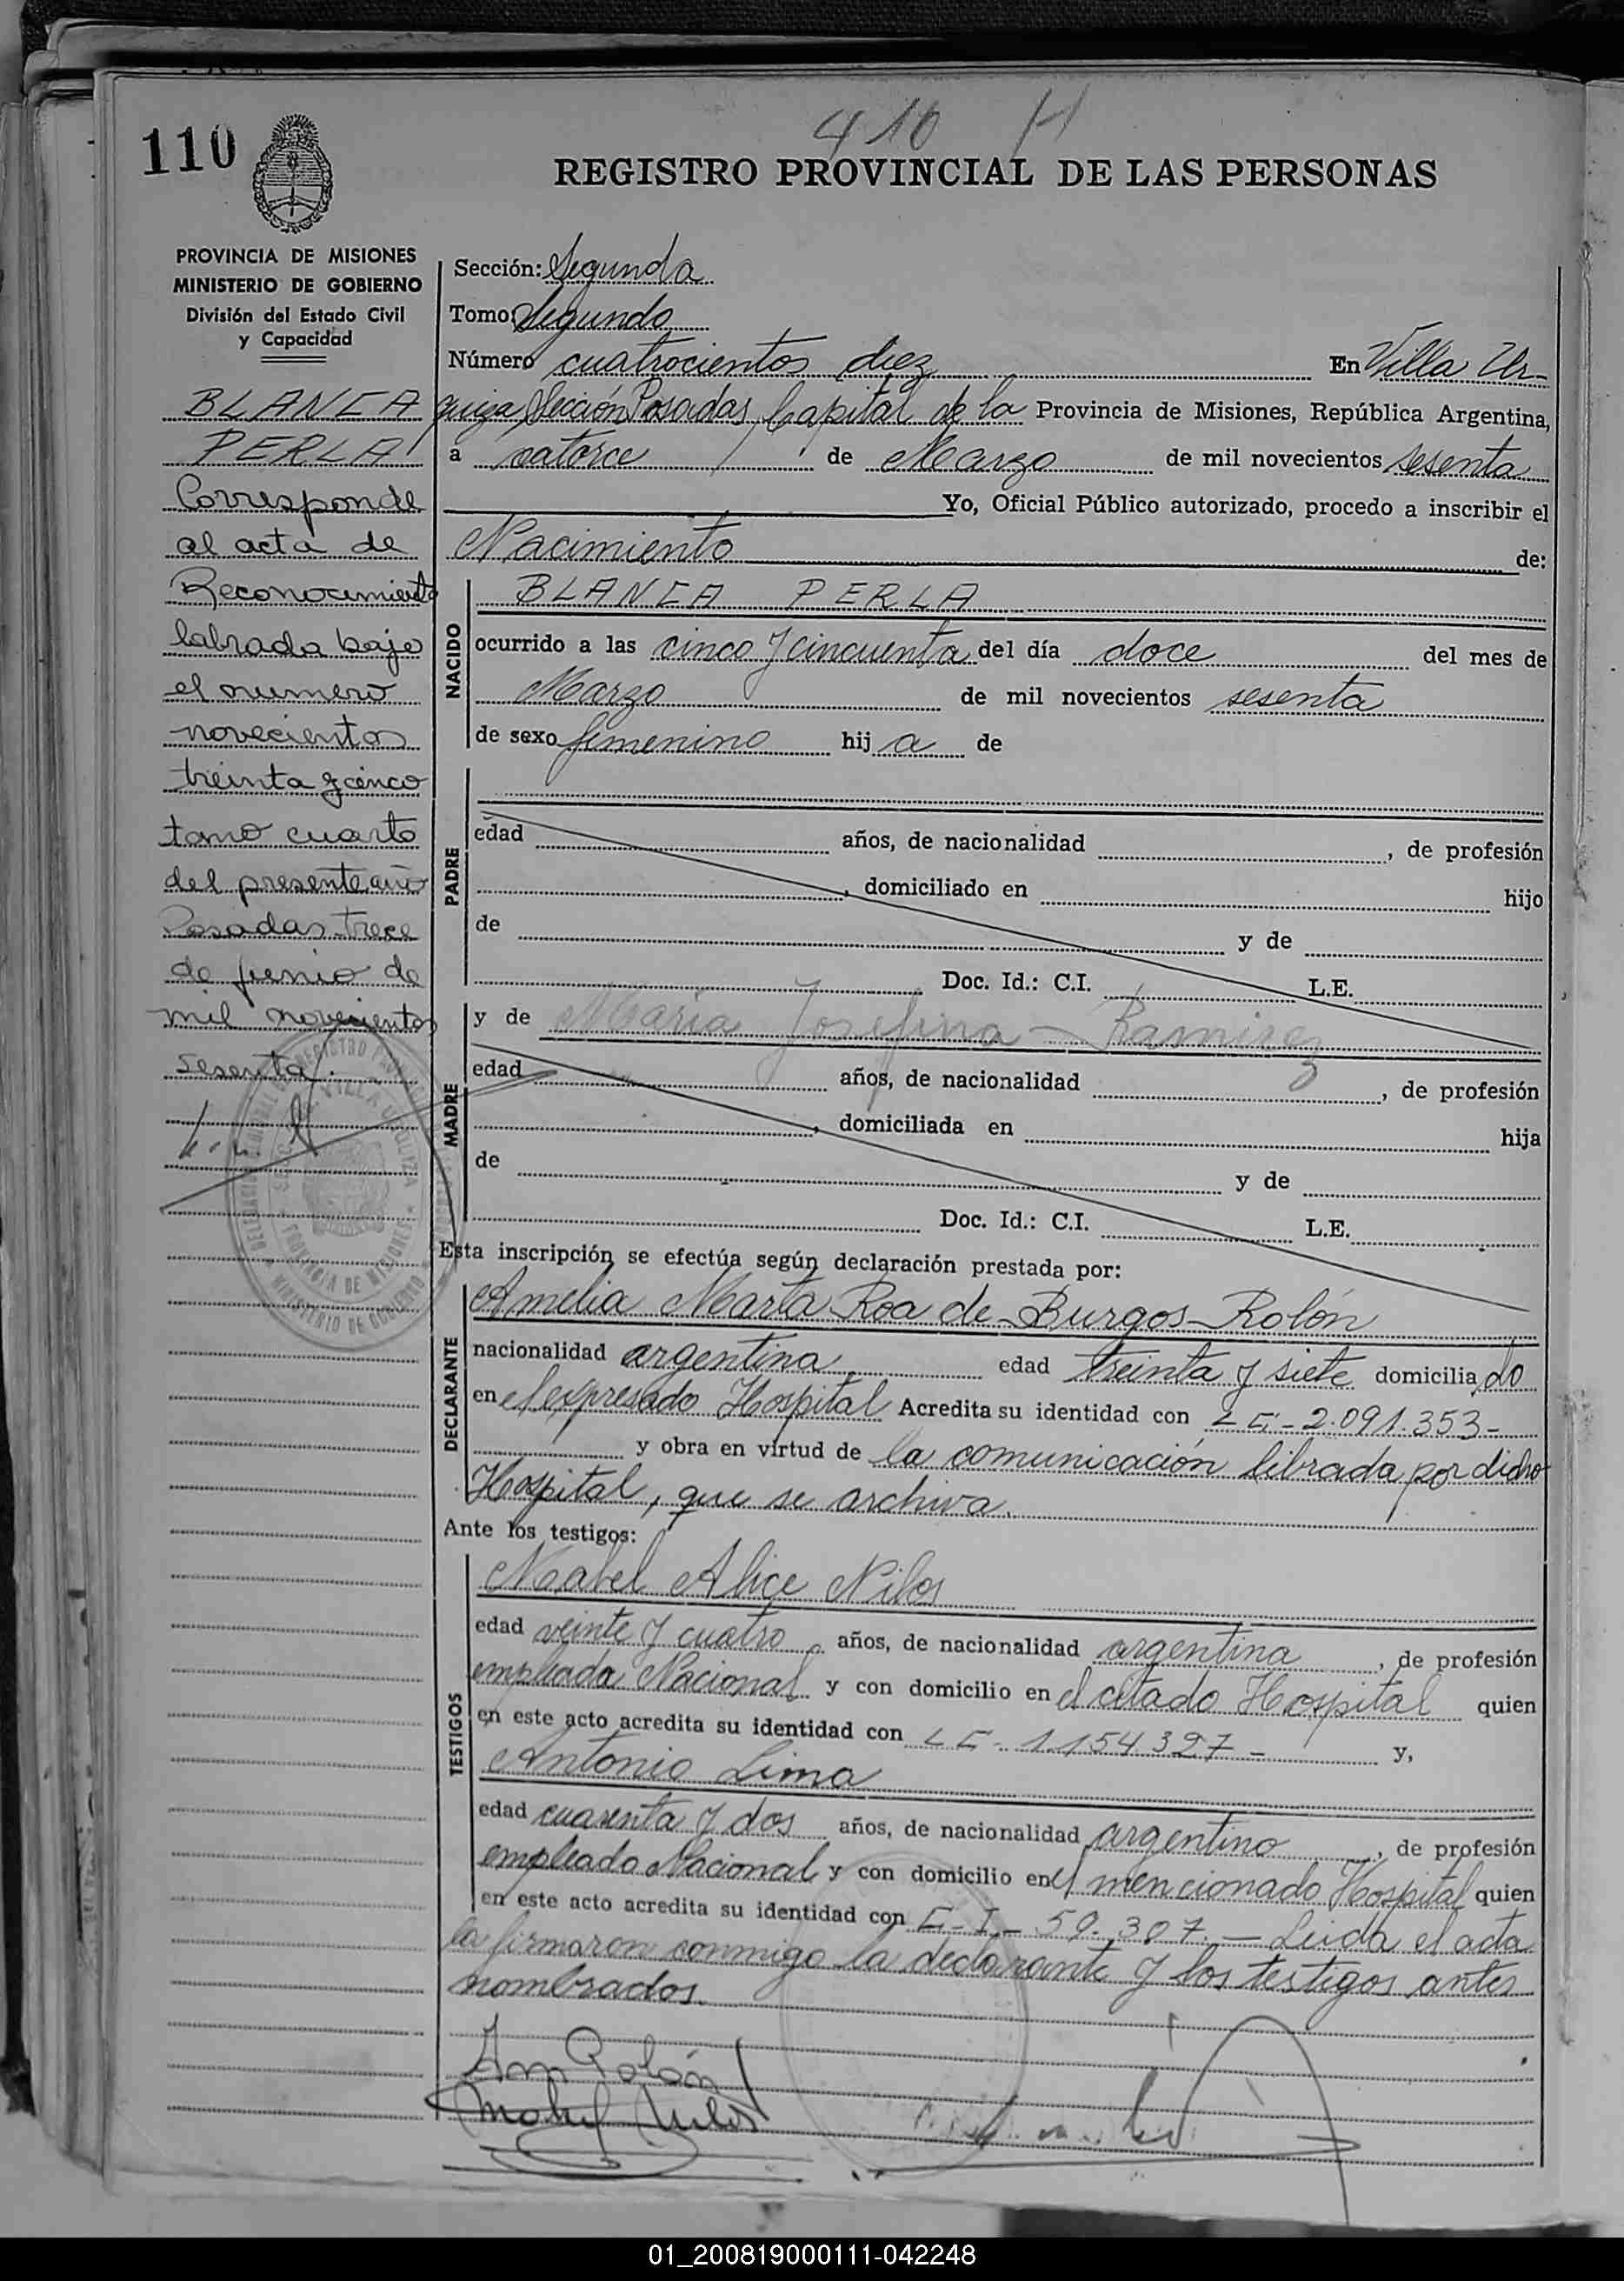 410 H
110
REGISTRO PROVINCIAL DE LAS PERSONAS
PROVINCIA DE MISIONES
MINISTERIO DE GOBIERNO
División del Estado Civil
y Capacidad
BLANCA
PERLA
Corresponde
al acta de
Reconocimiento
labrada bajo
el numero
novecientos
treinta y cinco
tomo cuarto
del presente año
Posadas, trece
de junio de
mil novecientos
sesenta.
Sección: Segunda
Tomo: Segundo
Número cuatrocientos diez En Villa Ur-
quiza Sección Posadas, Capital de la Provincia de Misiones, República Argentina,
a catorce de Marzo de mil novecientos sesenta
Yo, Oficial Público autorizado, procedo a inscribir el
Nacimiento de:
NACIDO
BLANCA PERLA
ocurrido a las cinco y cincuenta del día doce del mes de
Marzo de mil novecientos sesenta
de sexo femenino hija de
PADRE
edad años, de nacionalidad , de profesión
, domiciliado en hijo
de y de
Doc. Id.: C.I. L.E.
MADRE
y de Maria Josefina Ramirez
edad años, de nacionalidad , de profesión
, domiciliada en hija
de y de
Doc. Id.: C.I. L.E.
Esta inscripción se efectúa según declaración prestada por:
DECLARANTE
Amelia Marta Roa de Burgos Rolón
nacionalidad argentina edad treinta y siete domiciliado
en el expresado Hospital Acredita su identidad con L C - 2.091.353 -
y obra en virtud de la comunicación librada por dicho
Hospital, que se archiva.
Ante los testigos:
TESTIGOS
Mabel Alice Nilos
edad veinte y cuatro años, de nacionalidad argentina , de profesión
empleada Nacional y con domicilio en el citado Hospital quien
en este acto acredita su identidad con L C - 1.154.327 - y,
Antonio Lima
edad cuarenta y dos años, de nacionalidad argentino , de profesión
empleado Nacional y con domicilio en el mencionado Hospital quien
en este acto acredita su identidad con C - I - 59.307 - Leida el acta
la firmaron conmigo la declarante y los testigos antes
nombrados.
01_200819000111-042248